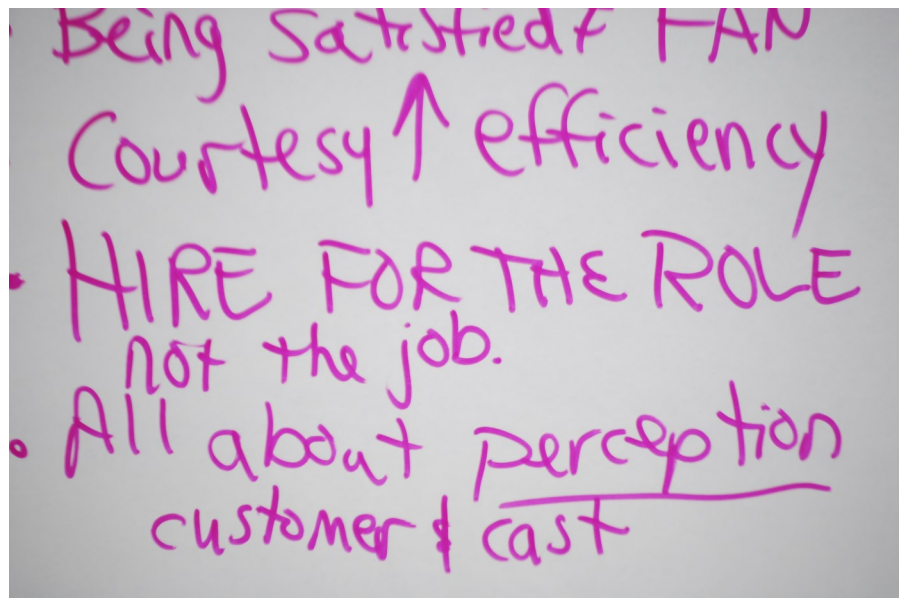 Being Satisfied & FAN
Courtesy ↑ efficiency
• HIRE FOR THE ROLE
not the job.
• All about perception
customer & cast